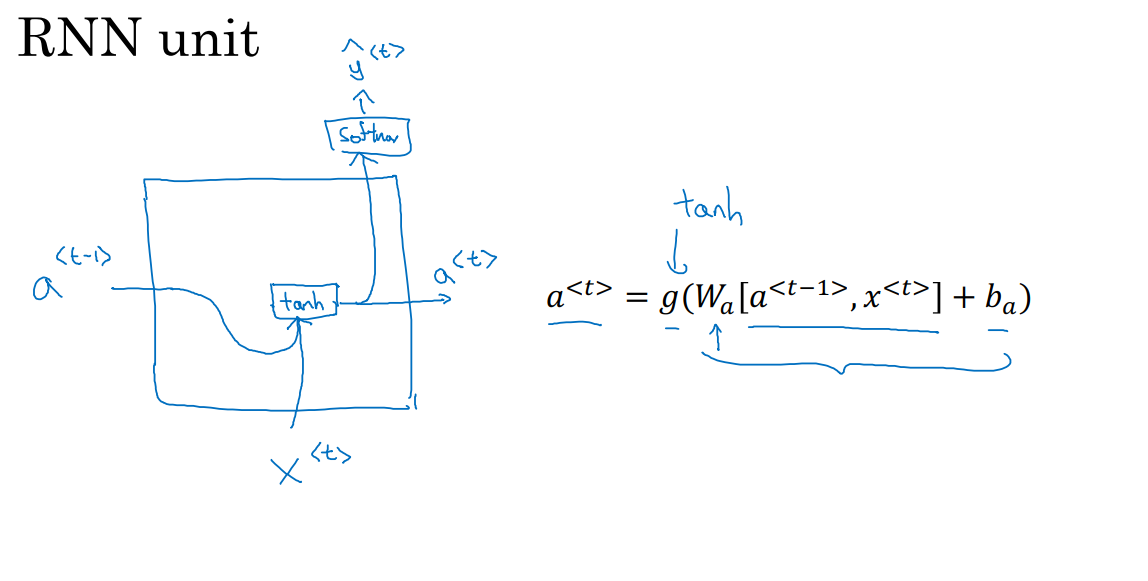 RNN unit
ŷ<t>
softmax
a<t-1>
tanh
a<t>
x<t>
tanh
a<t> = g(Wₐ[a<t−1>, x<t>] + bₐ)